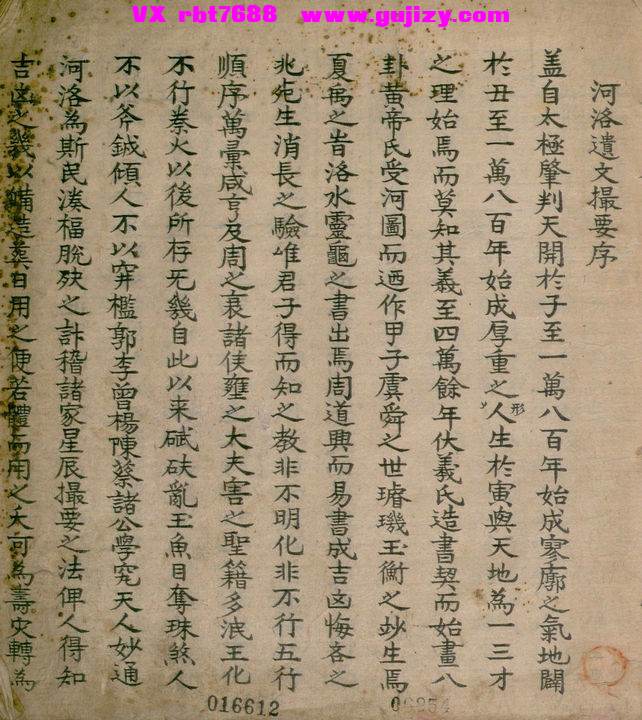 VX rbt7688 www.gujizy.com
河洛遺文撮要序
盖自太極肇判天開於子至一萬八百年始成寥廓之氣地闢
於丑至一萬八百年始成厚重之形人生於寅與天地為一三才
之理始焉而莫知其義至四萬餘年伏羲氏造書契而始畫八
卦黃帝氏受河圖而迺作甲子虞舜之世璿璣玉衡之妙生焉
夏禹之旹洛水靈龜之書出焉周道興而易書成吉凶悔吝之
兆先生消長之驗唯君子得而知之教非不明化非不行五行
順序萬彙咸亨及周之衰諸侯壅之大夫害之聖籍多泯王化
不行秦火以後所存旡幾自此以来碔砆亂玉魚目奪珠煞人
不以斧鉞傾人不以穽檻郭李曾楊陳蔡諸公學究天人妙通
河洛為斯民湊福脫殃之計稽諸家星辰撮要之法俾人得知
吉凶之幾以備造葬日用之便若體而用之夭可為壽灾轉為
016612
06854